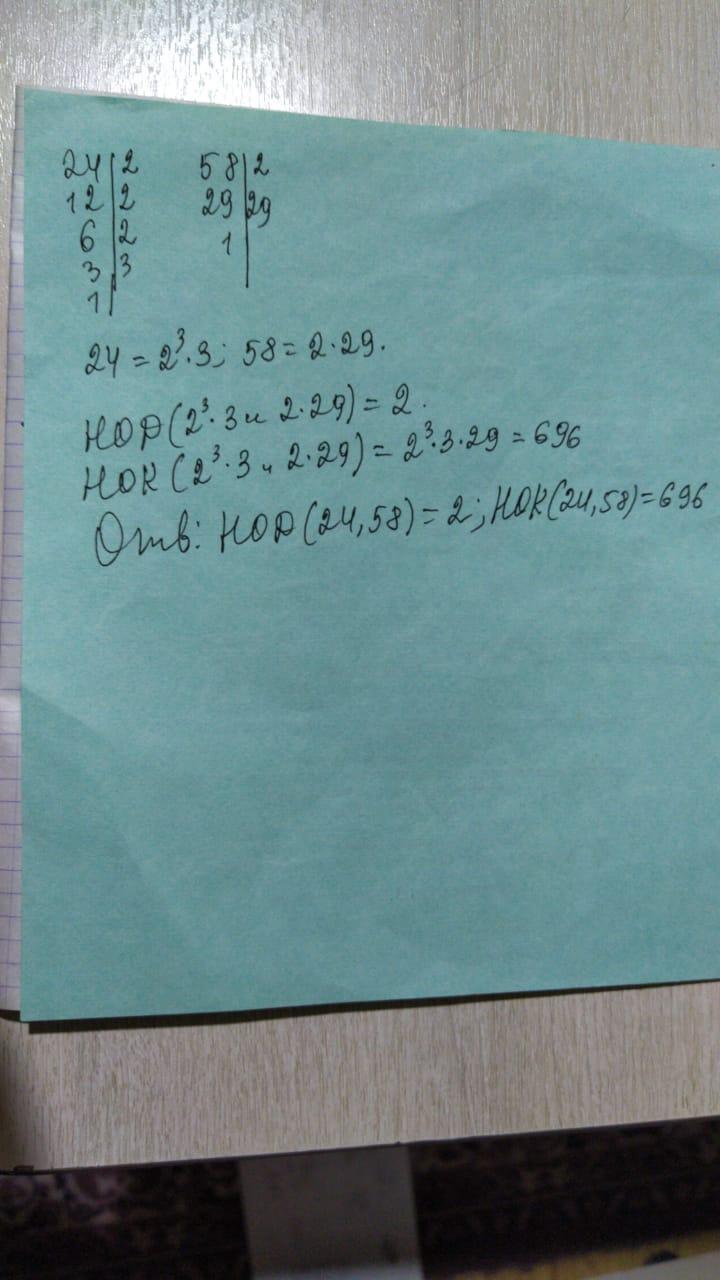 24|2 58|2
12|2 29|29
6|2 1|
3|3
1|
24 = 2³·3; 58 = 2·29.
НОД(2³·3 и 2·29) = 2.
НОК(2³·3 и 2·29) = 2³·3·29 = 696
Отв: НОД(24,58) = 2; НОК(24,58)=696